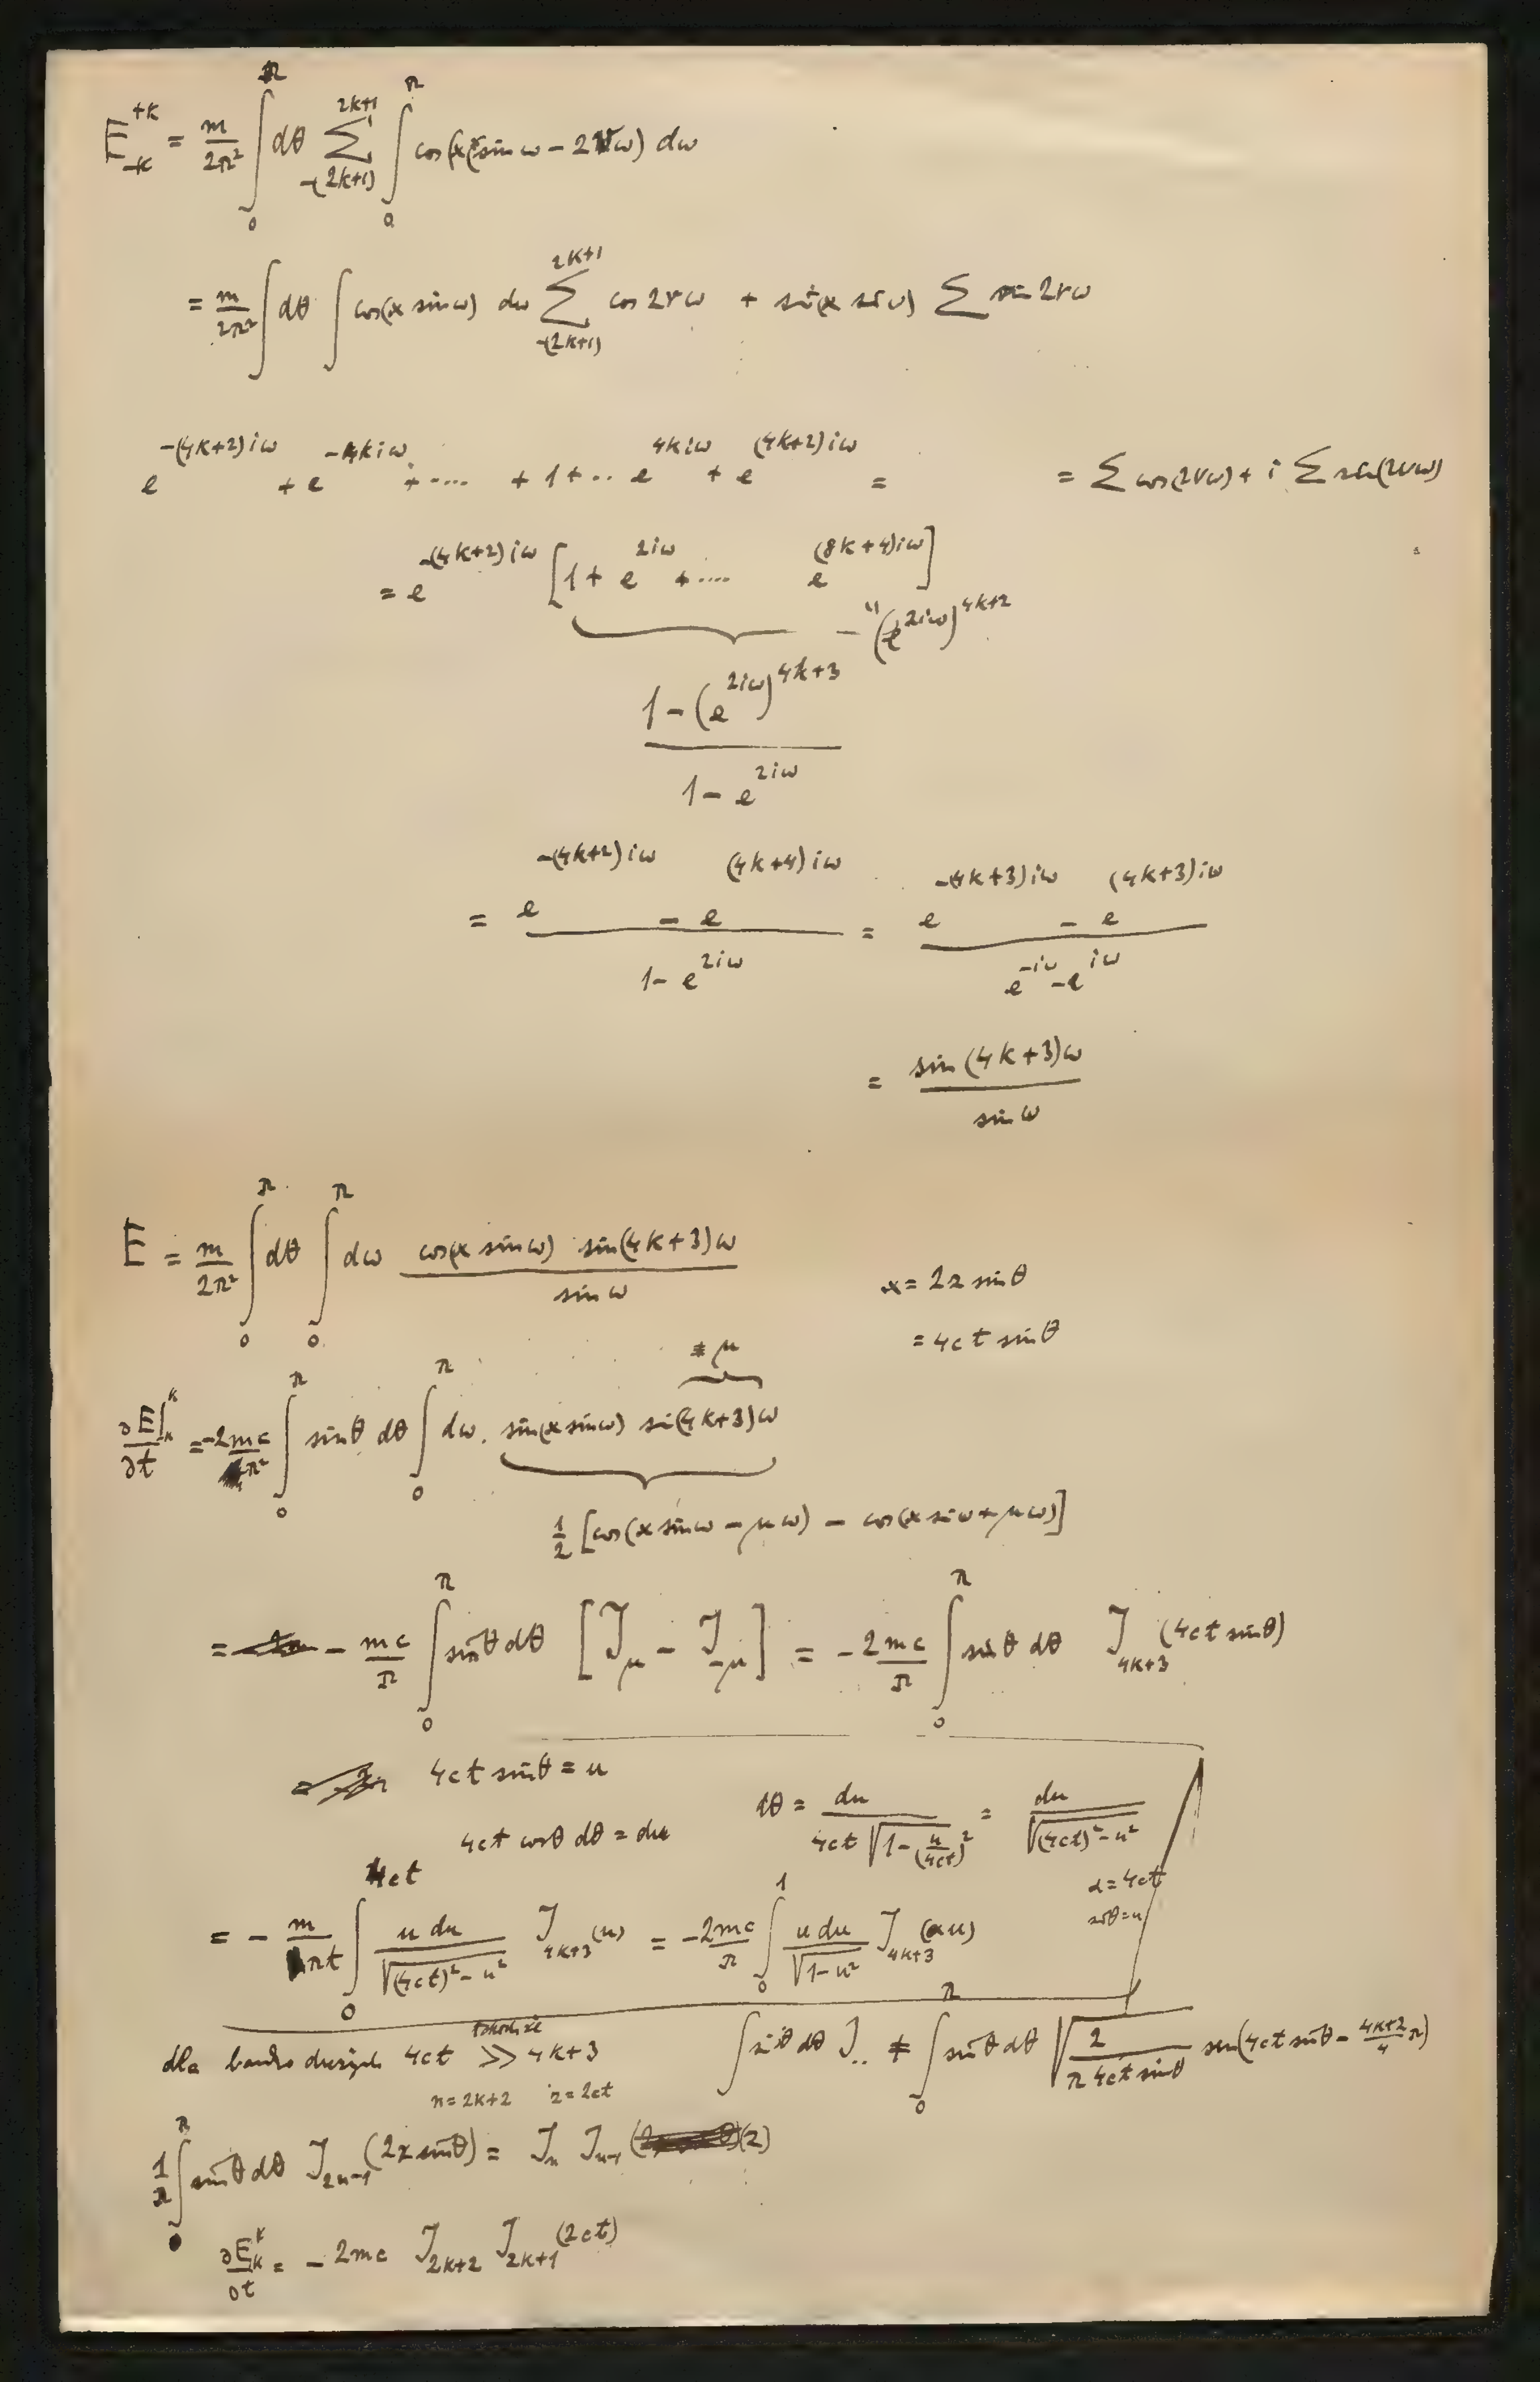 E_{-k}^{+k} = \frac{m}{2π²} \int_0^π dθ \sum_{-(2k+1)}^{2k+1} \int_0^π cos(x sin ω - 2νω) dω
= \frac{m}{2π²} \int dθ \int cos(x sin ω) dω \sum_{-(2k+1)}^{2k+1} cos 2νω + sin(x sin ω) \sum sin 2νω
e^{-(4k+2)iω} + e^{-4kiω} + .... + 1 + .. e^{4kiω} + e^{(4k+2)iω} = = \sum cos(2νω) + i \sum sin(2νω)
= e^{-(4k+2)iω} [1 + e^{2iω} + .... e^{(8k+4)iω}]
" (e^{2iω})^{4k+2}
\frac{1 - (e^{2iω})^{4k+3}}{1 - e^{2iω}}
= \frac{e^{-(4k+2)iω} - e^{(4k+4)iω}}{1 - e^{2iω}} = \frac{e^{-(4k+3)iω} - e^{(4k+3)iω}}{e^{-iω} - e^{iω}}
= \frac{sin (4k+3)ω}{sin ω}
E = \frac{m}{2π²} \int_0^π dθ \int_0^π dω \frac{cos(x sin ω) sin(4k+3)ω}{sin ω} x = 2z sin θ
= 4ct sin θ
= μ
\frac{∂E|_k^k}{∂t} = -\frac{2mc}{π²} \int_0^π sin θ dθ \int_0^π dω . sin(x sin ω) sin(4k+3)ω
\frac{1}{2} [cos(x sin ω - μω) - cos(x sin ω + μω)]
= - \frac{mc}{π} \int_0^π sin θ dθ [J_μ - J_{-μ}] = -\frac{2mc}{π} \int_0^π sin θ dθ J_{4k+3}(4ct sin θ)
4ct sin θ = u
4ct cos θ dθ = du dθ = \frac{du}{4ct \sqrt{1 - (\frac{u}{4ct})^2}} = \frac{du}{\sqrt{(4ct)² - u²}}
α = 4ct
sin θ = u
= - \frac{m}{πt} \int_0^{4ct} \frac{u du}{\sqrt{(4ct)² - u²}} J_{4k+3}(u) = -\frac{2mc}{π} \int_0^1 \frac{u du}{\sqrt{1 - u²}} J_{4k+3}(αu)
dla bardzo 4ct ≫ 4k+3 \int sin θ dθ J.. ≠ \int_0^π sin θ dθ \sqrt{\frac{2}{π 4ct sin θ}} sin(4ct sin θ - \frac{4k+2}{4} π)
n = 2k+2 z = 2ct
\frac{1}{π} \int_0^π sin θ dθ J_{2n-1}(2z sin θ) = J_n J_{n-1} (z)
\frac{∂E_k^k}{∂t} = - 2mc J_{2k+2} J_{2k+1}(2ct)